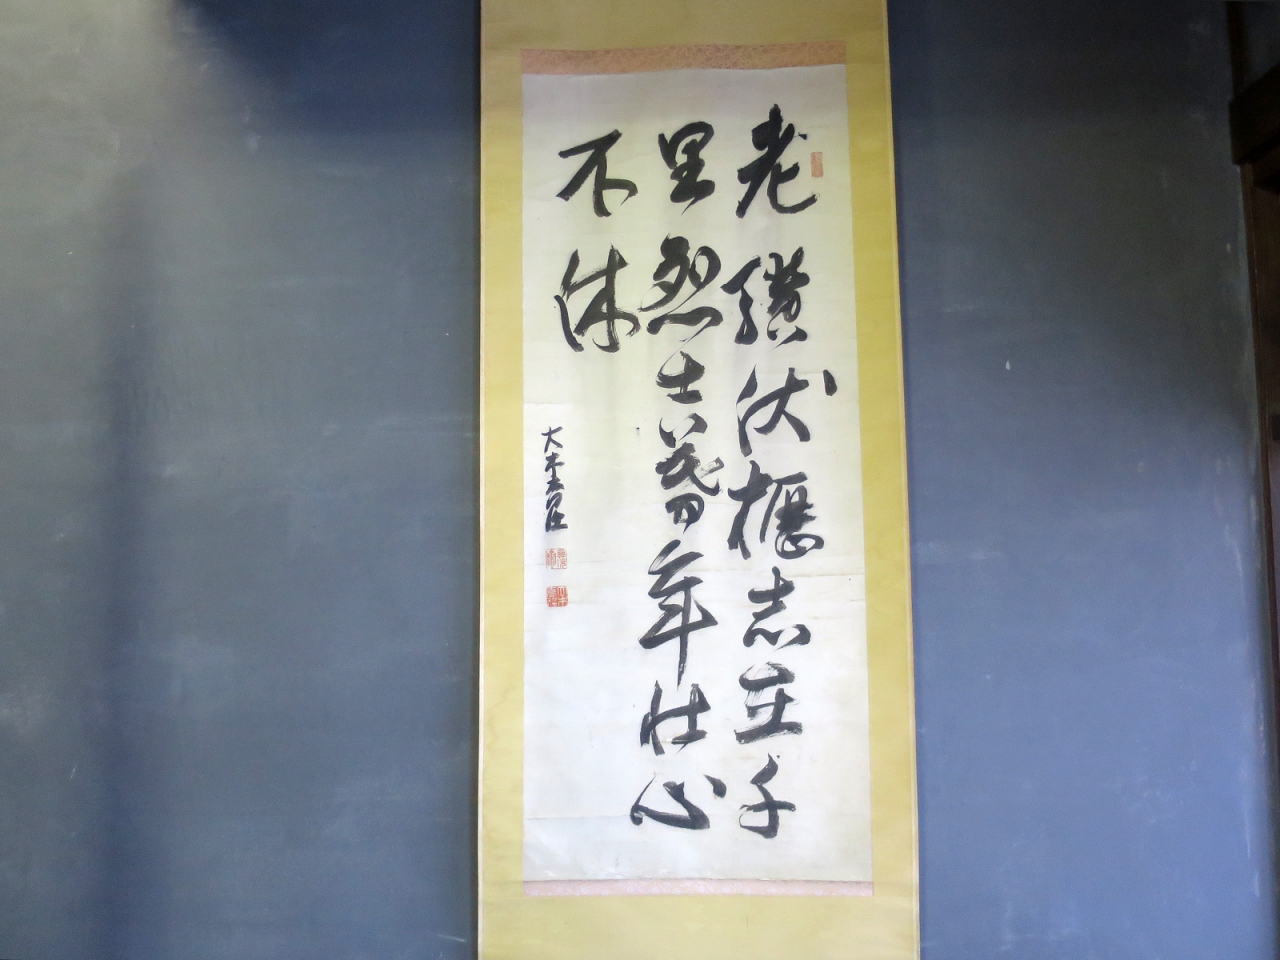 老驥伏櫪志在千
里烈士暮年壮心
不休
大木喬任